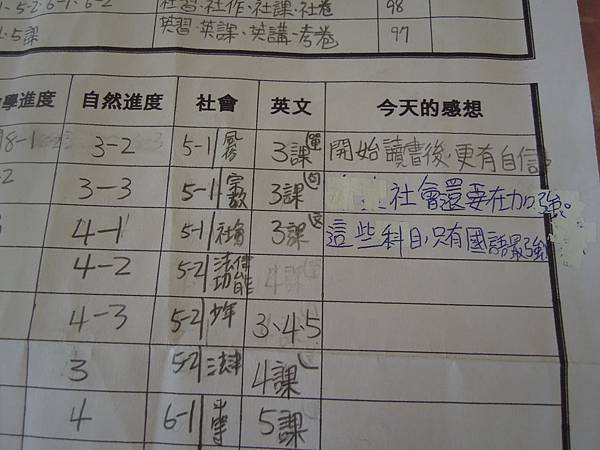 5-2.6-1.6-2 社習.社作.社課.社卷 98
4.5課 英習.英課.英講.考卷 97
學進度 自然進度 社會 英文 今天的感想
98-1 3-2 5-1 風俗 3課 單 開始讀書後,更有自信。
-2 3-3 5-1 宗教 3課 句 社會還要在加強。
4-1 5-1 社會 3課 這些科目,只有國語最強
4-2 5-2 法律功能 4課
4-3 5-2 少年 3.4.5
3 5-2 法律 4課
4 6-1 5課